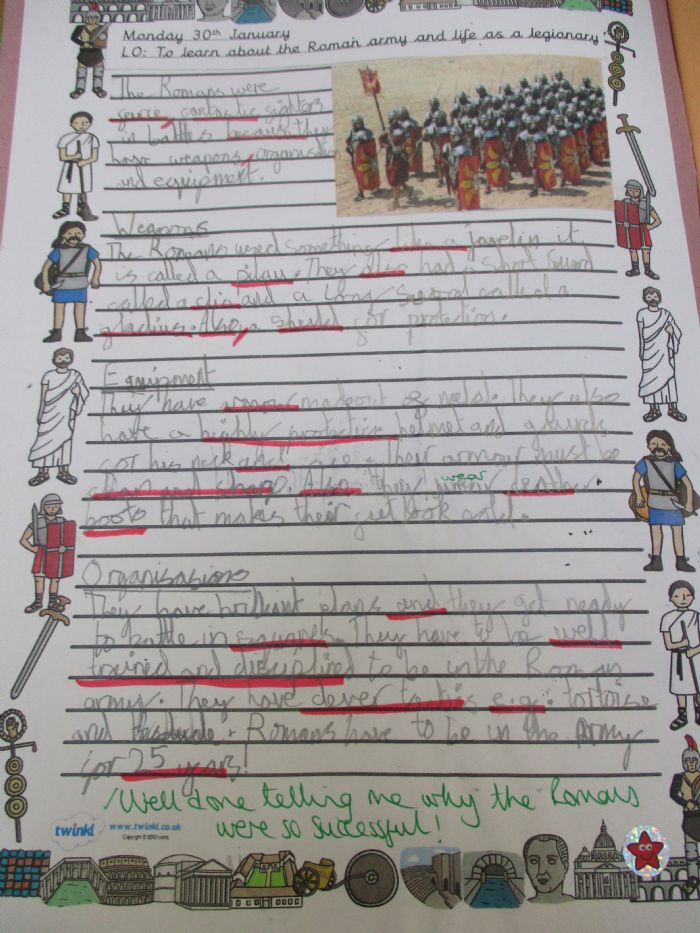 Monday 30th January
LO: To learn about the Roman army and life as a legionary
The Romans were
fantastic fighters
in battles because they
have weapons, organisation
and equipment.
Weapons
The Romans used something like a javelin it
is called a pilau. They also had a short sword
called a and a long sword called a
gladius. Also, a sheild for protection.
Equipment
They have armour made out of metal. They also
have a highly protective helmet and guards
for his neck and face. their armour must be
clean and sharp. Also their wear leather
boots that makes their feet look
Organisasions
They have brilliant plans and they get ready
to battle in They have to be well
trained and disciplined to be in the Roman
army. They have clever tactics e.g. tortoise
and Romans have to be in the army
for 25 years!
Well done telling me why the Romans
were so successful!
twinkl www.twinkl.co.uk